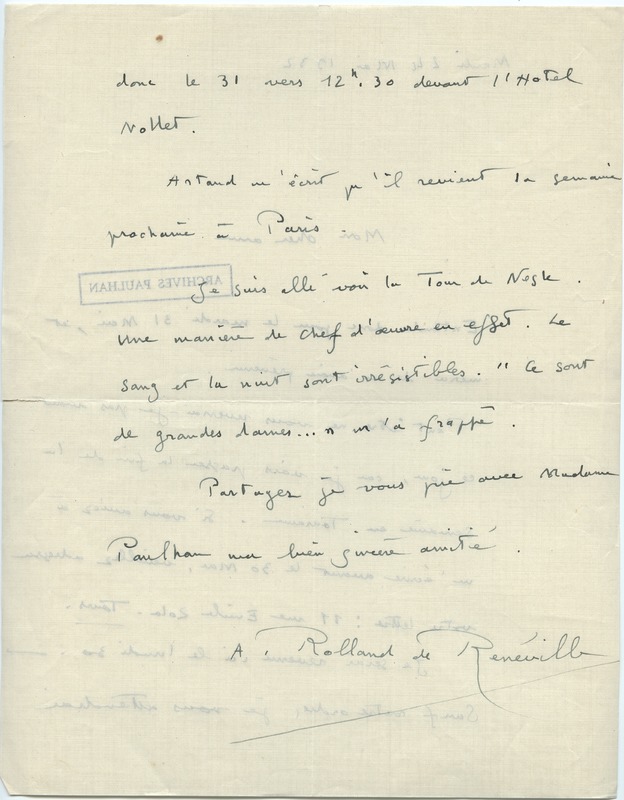 donc le 31 vers 12h.30 devant l'Hotel
Nollet.
Artaud m'écrit qu'il revient la semaine
prochaine à Paris.
Je suis allé voir la Tour de Nesle.
Une manière de chef d'œuvre en effet. Le
sang et la nuit sont irrésistibles. "Ce sont
de grandes dames..." m'a frappé.
Partagez je vous prie avec Madame
Paulhan ma bien sincère amitié.
A. Rolland de Renéville
ARCHIVES PAULHAN